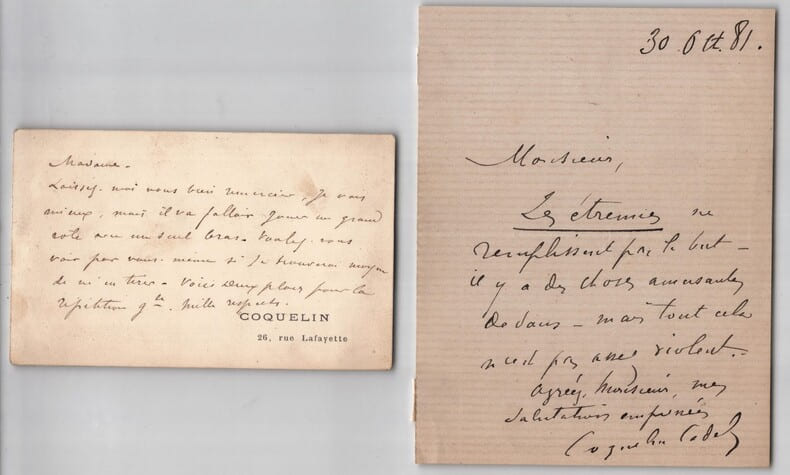 Madame.
Laissez-moi vous bien remercier, Je vais
mieux, mais il va falloir jouer un grand
role avec un seul bras. Voulez-vous
voir par vous-meme si Je trouverai moyen
de m'en tirer. Voici deux places pour la
répétition gle. Mille respects.
COQUELIN
26, rue Lafayette
30 Oct. 81.
Monsieur,
Les étrennes ne
remplissent pas le but –
il y a des choses amusantes
dedans – mais tout cela
n'est pas assez violent.
Agréez, Monsieur, mes
salutations empressées
Coquelin Cadet